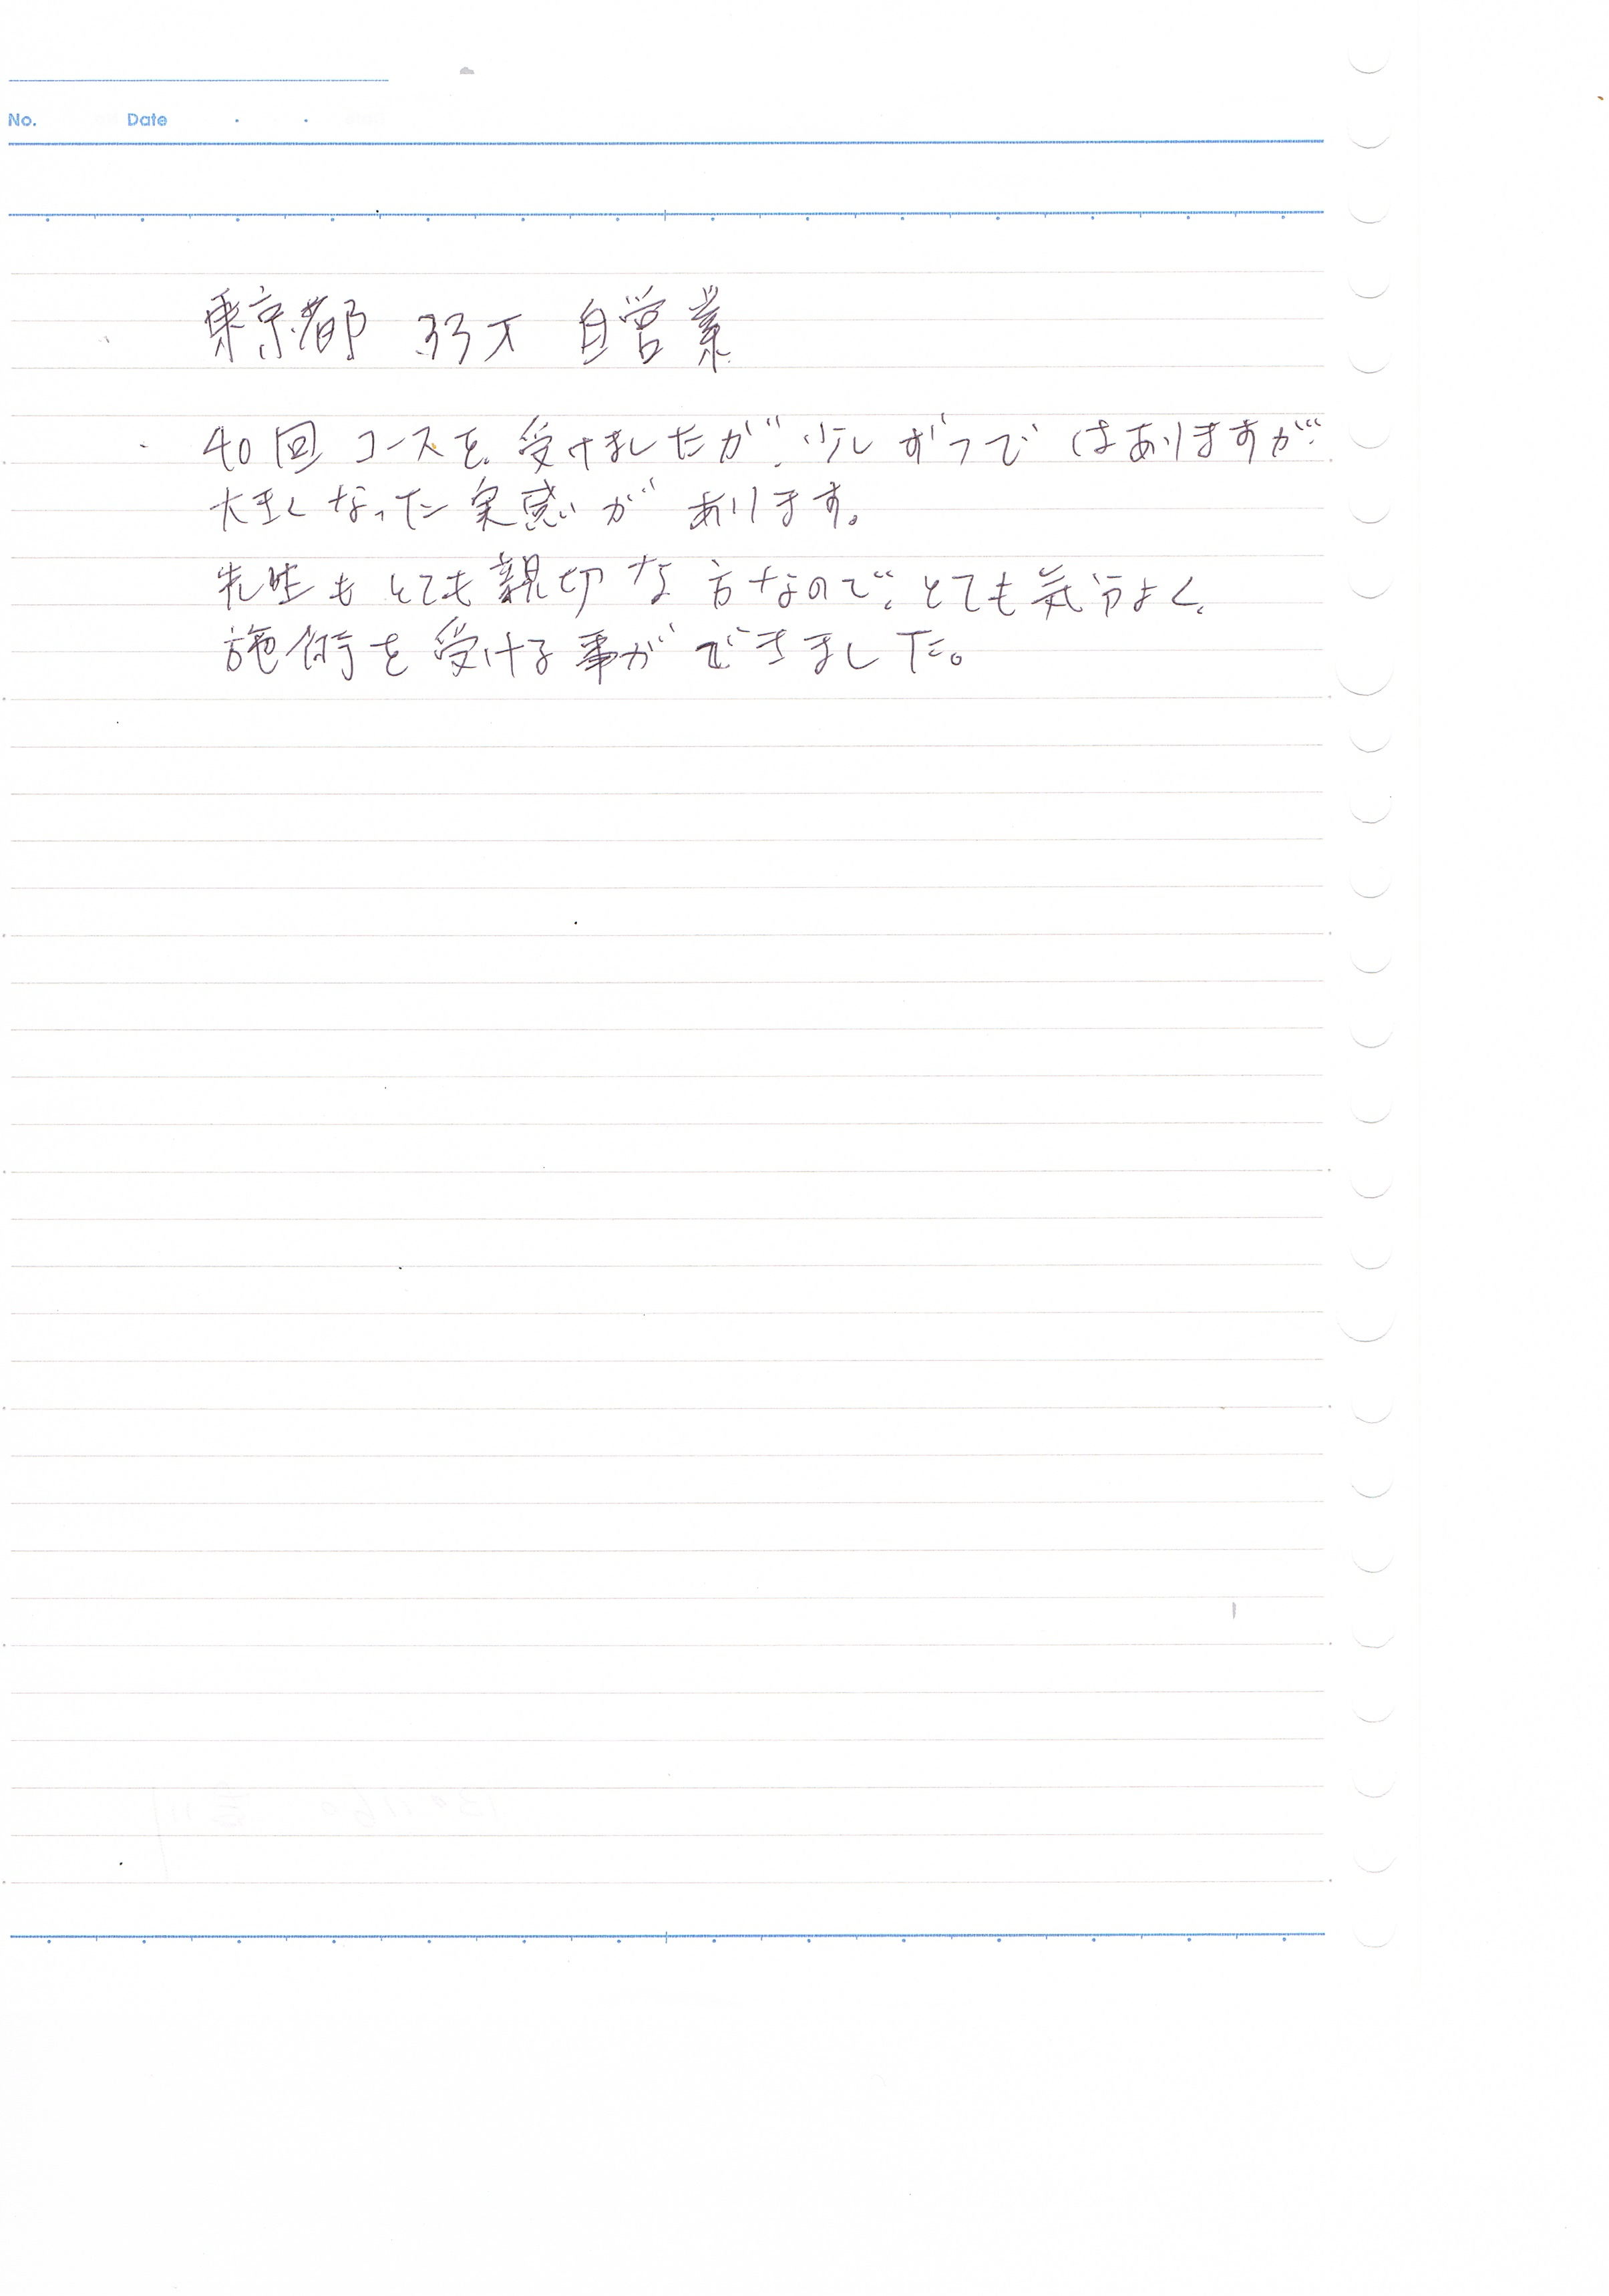 No. Date
東京都 33才 自営業
40回コースを受けましたが、少しずつではありますが、
大きくなった実感があります。
先生もとても親切な方なので、とても気分よく、
施術を受ける事ができました。